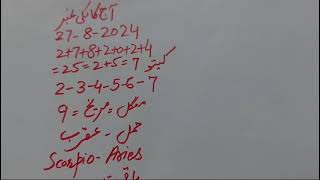 آج کا لکی نمبر
27-8-2024
2+7+8+2+0+2+4
=25=2+5=7 کیتو
2-3-4-5-6-7
9 = منگل = مریخ
حمل - عقرب
Scorpio-Aries